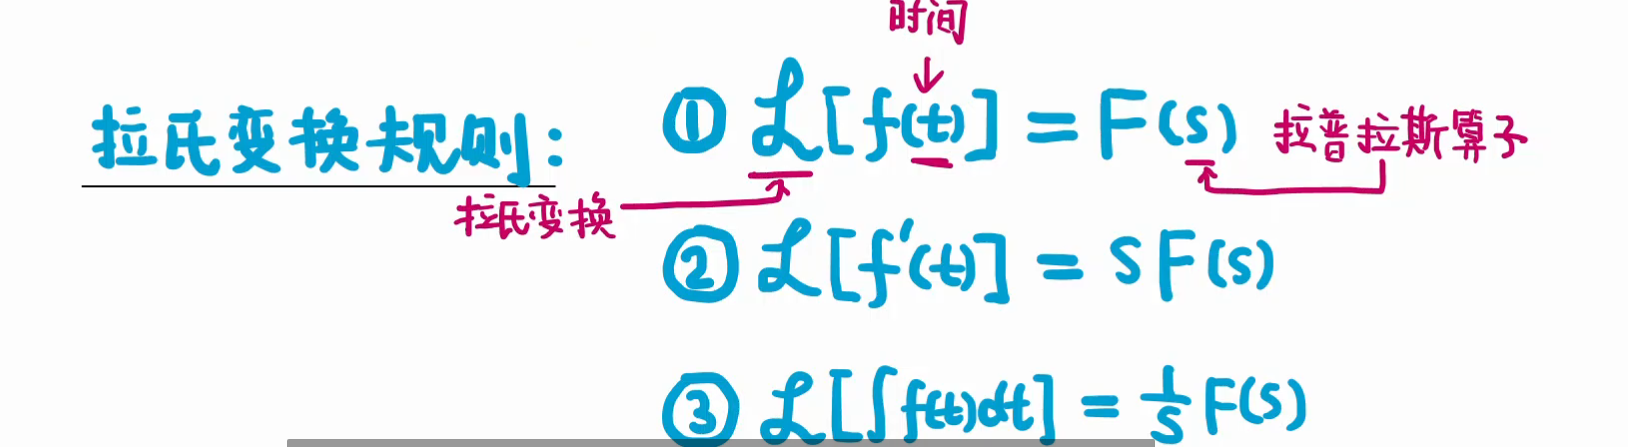 时间
拉氏变换规则: ① ℒ[f(t)] = F(s) 拉普拉斯算子
拉氏变换
② ℒ[f'(t)] = SF(s)
③ ℒ[∫f(t)dt] = 1/s F(s)